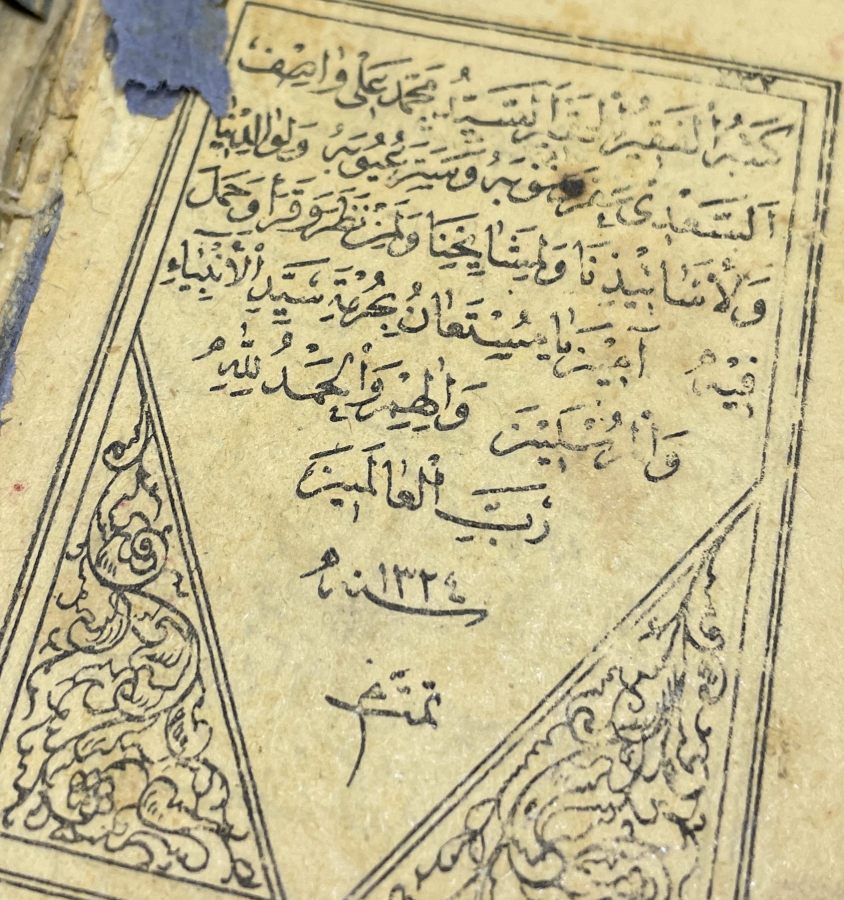 كَتَبَهُ الْفَقِيرُ الْحَقِيرُ السَّيِّدُ مُحَمَّد عَلِى وَاصِف
السَّعْدِى غَفَرَ ذُنُوبَهُ وَسَتَرَ عُيُوبَهُ وَلِوَالِدَيْنَا
وَلِأَسَاتِيذِنَا وَلِمَشَايِخِنَا وَلِمَنْ نَظَرَ وَقَرَأَ وَحَمَلَ
فِيهِ آمِينَ يَا مُسْتَعَانُ بِحُرْمَةِ سَيِّدِ الْأَنْبِيَاءِ
وَالْمُرْسَلِينَ وَالْحَمْدُ لِلّٰهِ
رَبِّ الْعَالَمِينَ
سنه ١٣٢٤
تمت